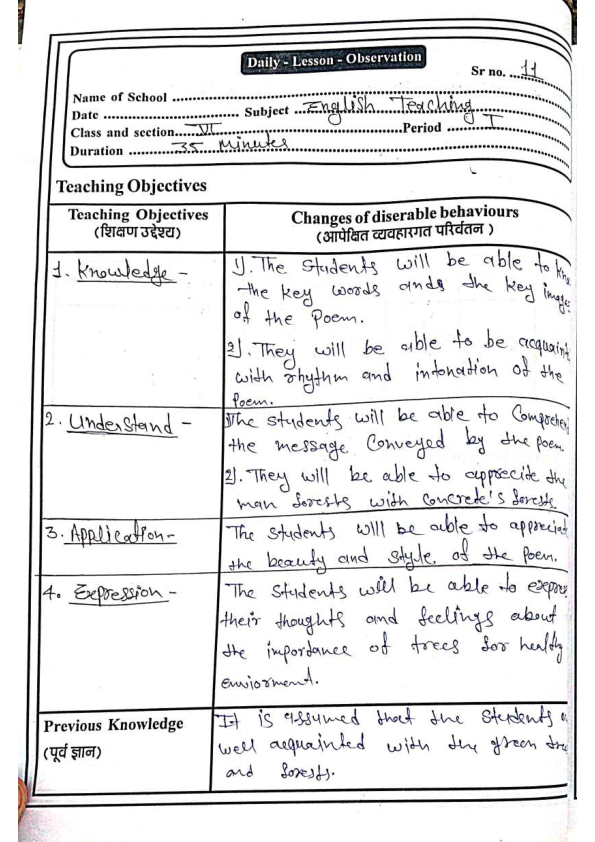 Daily - Lesson - Observation
Sr no. ... 11
Name of School ..........
Date .......... Subject ... English Teaching
Class and section..... VI ..........Period ..... I
Duration ........ 35 Minutes
Teaching Objectives
Teaching Objectives
(शिक्षण उद्देश्य)
Changes of diserable behaviours
(आपेक्षित व्यवहारगत परिर्वतन )
1. Knowledge -
1). The Students will be able to kno
the key words ands the key images
of the Poem.
2). They will be able to be acquaint
with rhythm and intonation of the
Poem.
2. Understand -
1) The students will be able to Comprehen
the message Conveyed by the poem
2). They will be able to apprecite the
man forests with Concrete's forests.
3. Application -
The students will be able to appreciat
the beauty and style. of the Poem.
4. Expression -
The Students will be able to expres
their thoughts and feelings about
the importance of trees for healthy
enviorment.
Previous Knowledge
(पूर्व ज्ञान)
It is assumed that the students a
well acquainted with the green tre
and forests.